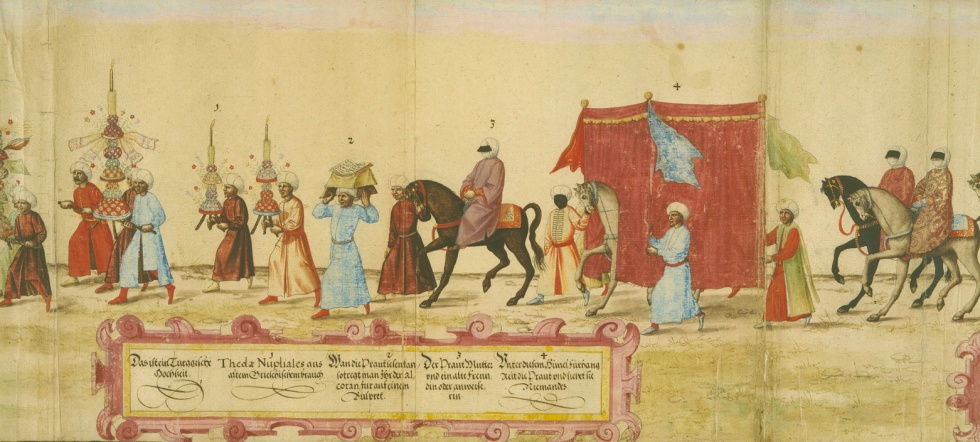 1
2
3
4
Das ist ein Turggische
Hochzeit.
Thedæ Nupliales aus
altem Griechischem brauch
2
Wan die Praut
so tregt man Ihr der Al
coran fur auf einem
Pulpret.
3
Der Praut Mutter
und ein alte freun
din oder anweise
rin
4
Unter disem Himel furhang
Reit die Praut und sicht sie
Niemandes